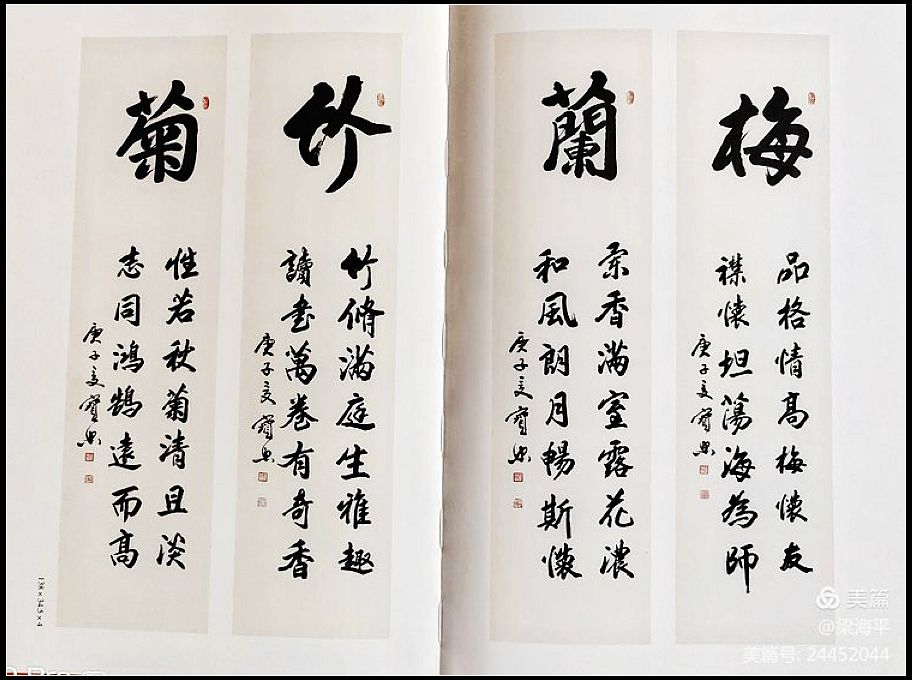 梅
品格情高梅懷友
襟懷坦蕩海為師
庚子夏寶忠
蘭
蘭香滿室露花濃
和風朗月暢斯懷
庚子夏寶忠
竹
竹脩滿庭生雅趣
讀書萬卷有奇香
庚子夏寶忠
菊
性若秋菊清且淡
志同鴻鵠遠而高
庚子夏寶忠
138×34.5×4
美篇
@梁海平
美篇号: 24452044